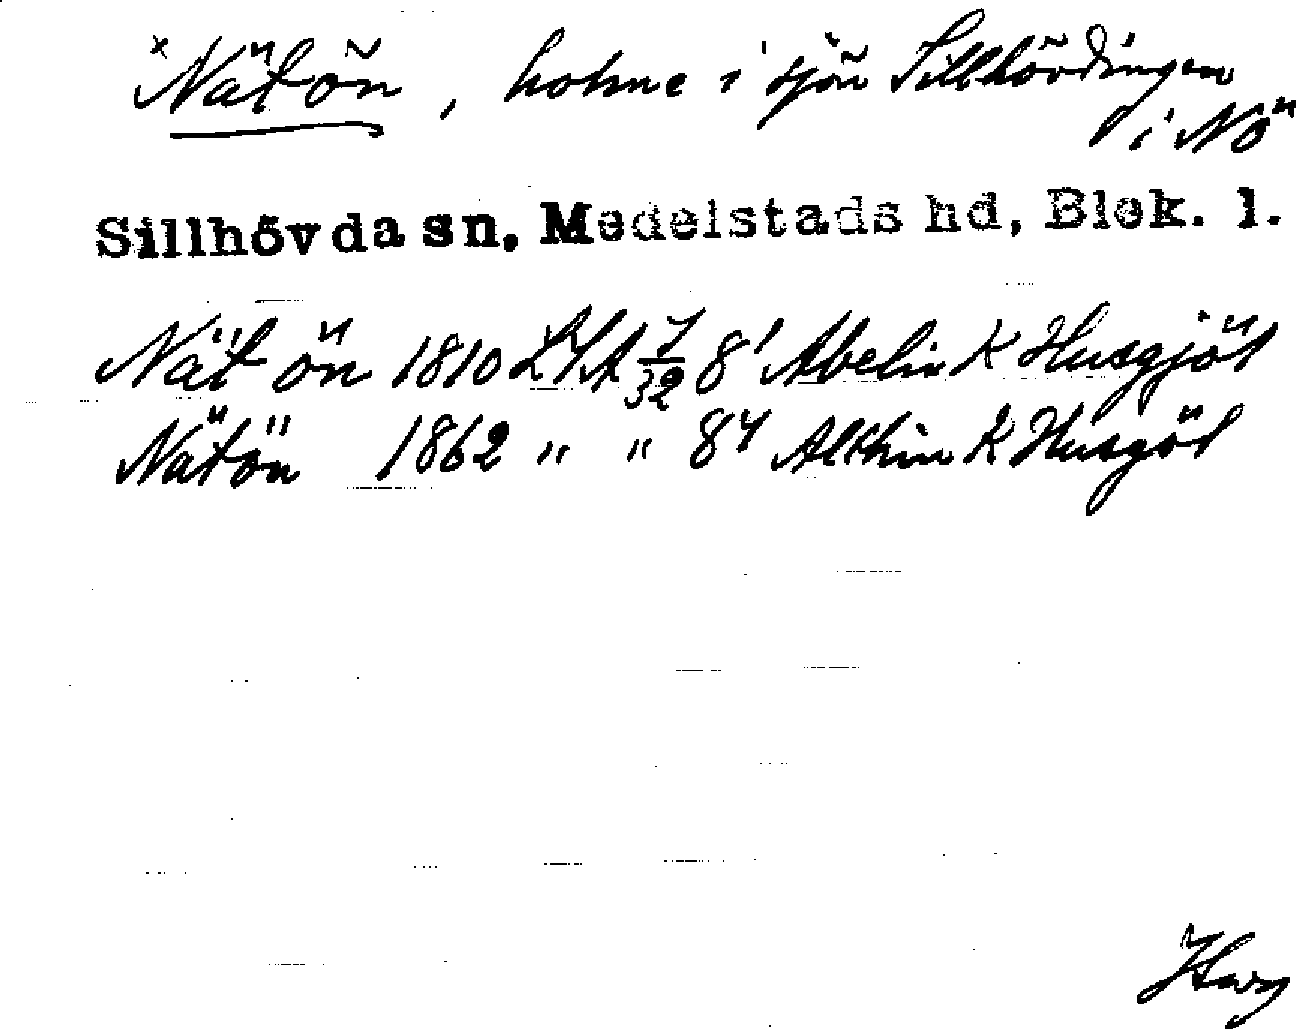 × Nätön, holme i sjön Sillhövdingen
i NÖ
Sillhövda sn, Medelstads hd, Blek. l.
Nät ön 1810 LSA 7/32 8¹ Abelin K Husgjöl
Nätön 1862 " " 8⁴ Althin K Husgöl